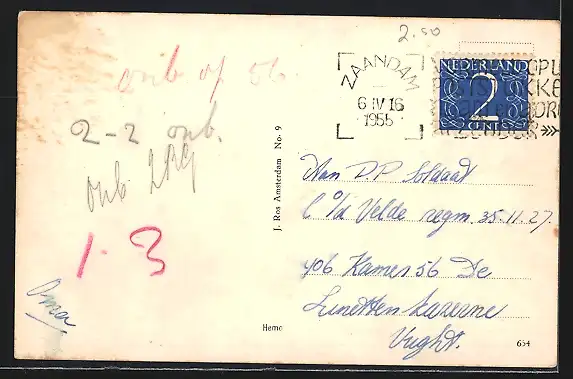 2.50
onb op 56
2-2 onb.
onb
1-3
Oma
Hemo
J. Ros Amsterdam No. 9
ZAANDAM
6 IV 16
1955
NEDERLAND
2
CENT
Aan DP Soldaat
C v/d Velde regm. 35.11.27.
406 Kamer 56 De
Lunetten kazerne
Vught.
654